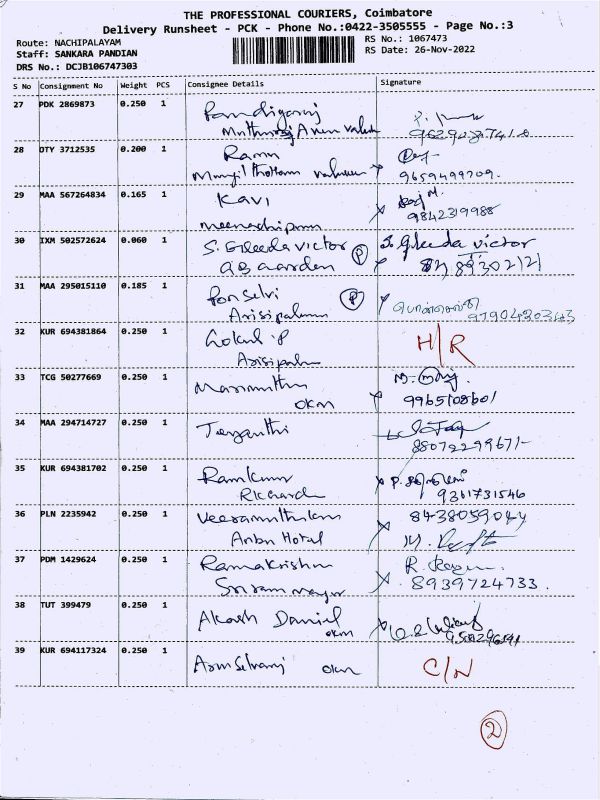 THE PROFESSIONAL COURIERS, Coimbatore
Delivery Runsheet - PCK - Phone No.:0422-3505555 - Page No.:3
Route: NACHIPALAYAM RS No.: 1067473
Staff: SANKARA PANDIAN RS Date: 26-Nov-2022
DRS No.: DCJB106747303
S No Consignment No Weight PCS Consignee Details Signature
27 PDK 2869873 0.250 1
28 DTY 3712535 0.200 1 Ramn
Thottam 9659499709.
29 MAA 567264834 0.165 1 Kavi
Meenachipuram 9842319988
30 IXM 502572624 0.060 1 S. Gleeda victor (P) S. Gleeda victor
GB Garden 8189302121
31 MAA 295015110 0.185 1 Ponselvi (P) பொன்செல்வி
Arisipalam 9790430343
32 KUR 694381864 0.250 1 Gokul P H/R
Arisipalam
33 TCG 50277669 0.250 1 Marimuthu
OKM 9965108601
34 MAA 294714727 0.250 1 Jeyanthi
8807229967
35 KUR 694381702 0.250 1 Ramkumar
9361731546
36 PLN 2235942 0.250 1 Veeramuthukumar 8438059044
Anbu Hotel
37 PDM 1429624 0.250 1 Ramakrishnan
Sriram nagar 8939724733.
38 TUT 399479 0.250 1 Akash Daniel
OKM
39 KUR 694117324 0.250 1 Arun Selvaraj OKM C/N
2